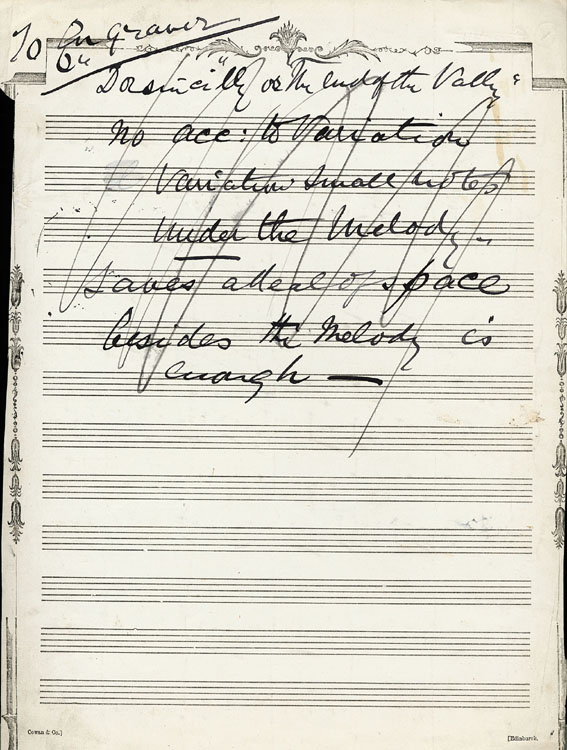 To Engraver
on
"Dorsincilly or The End of the Vally"
No acc: to Variation
Variation small notes
under the Melody -
Saves a deal of space
besides the Melody is
enough —
Cowan & Co.]
[Edinburgh.